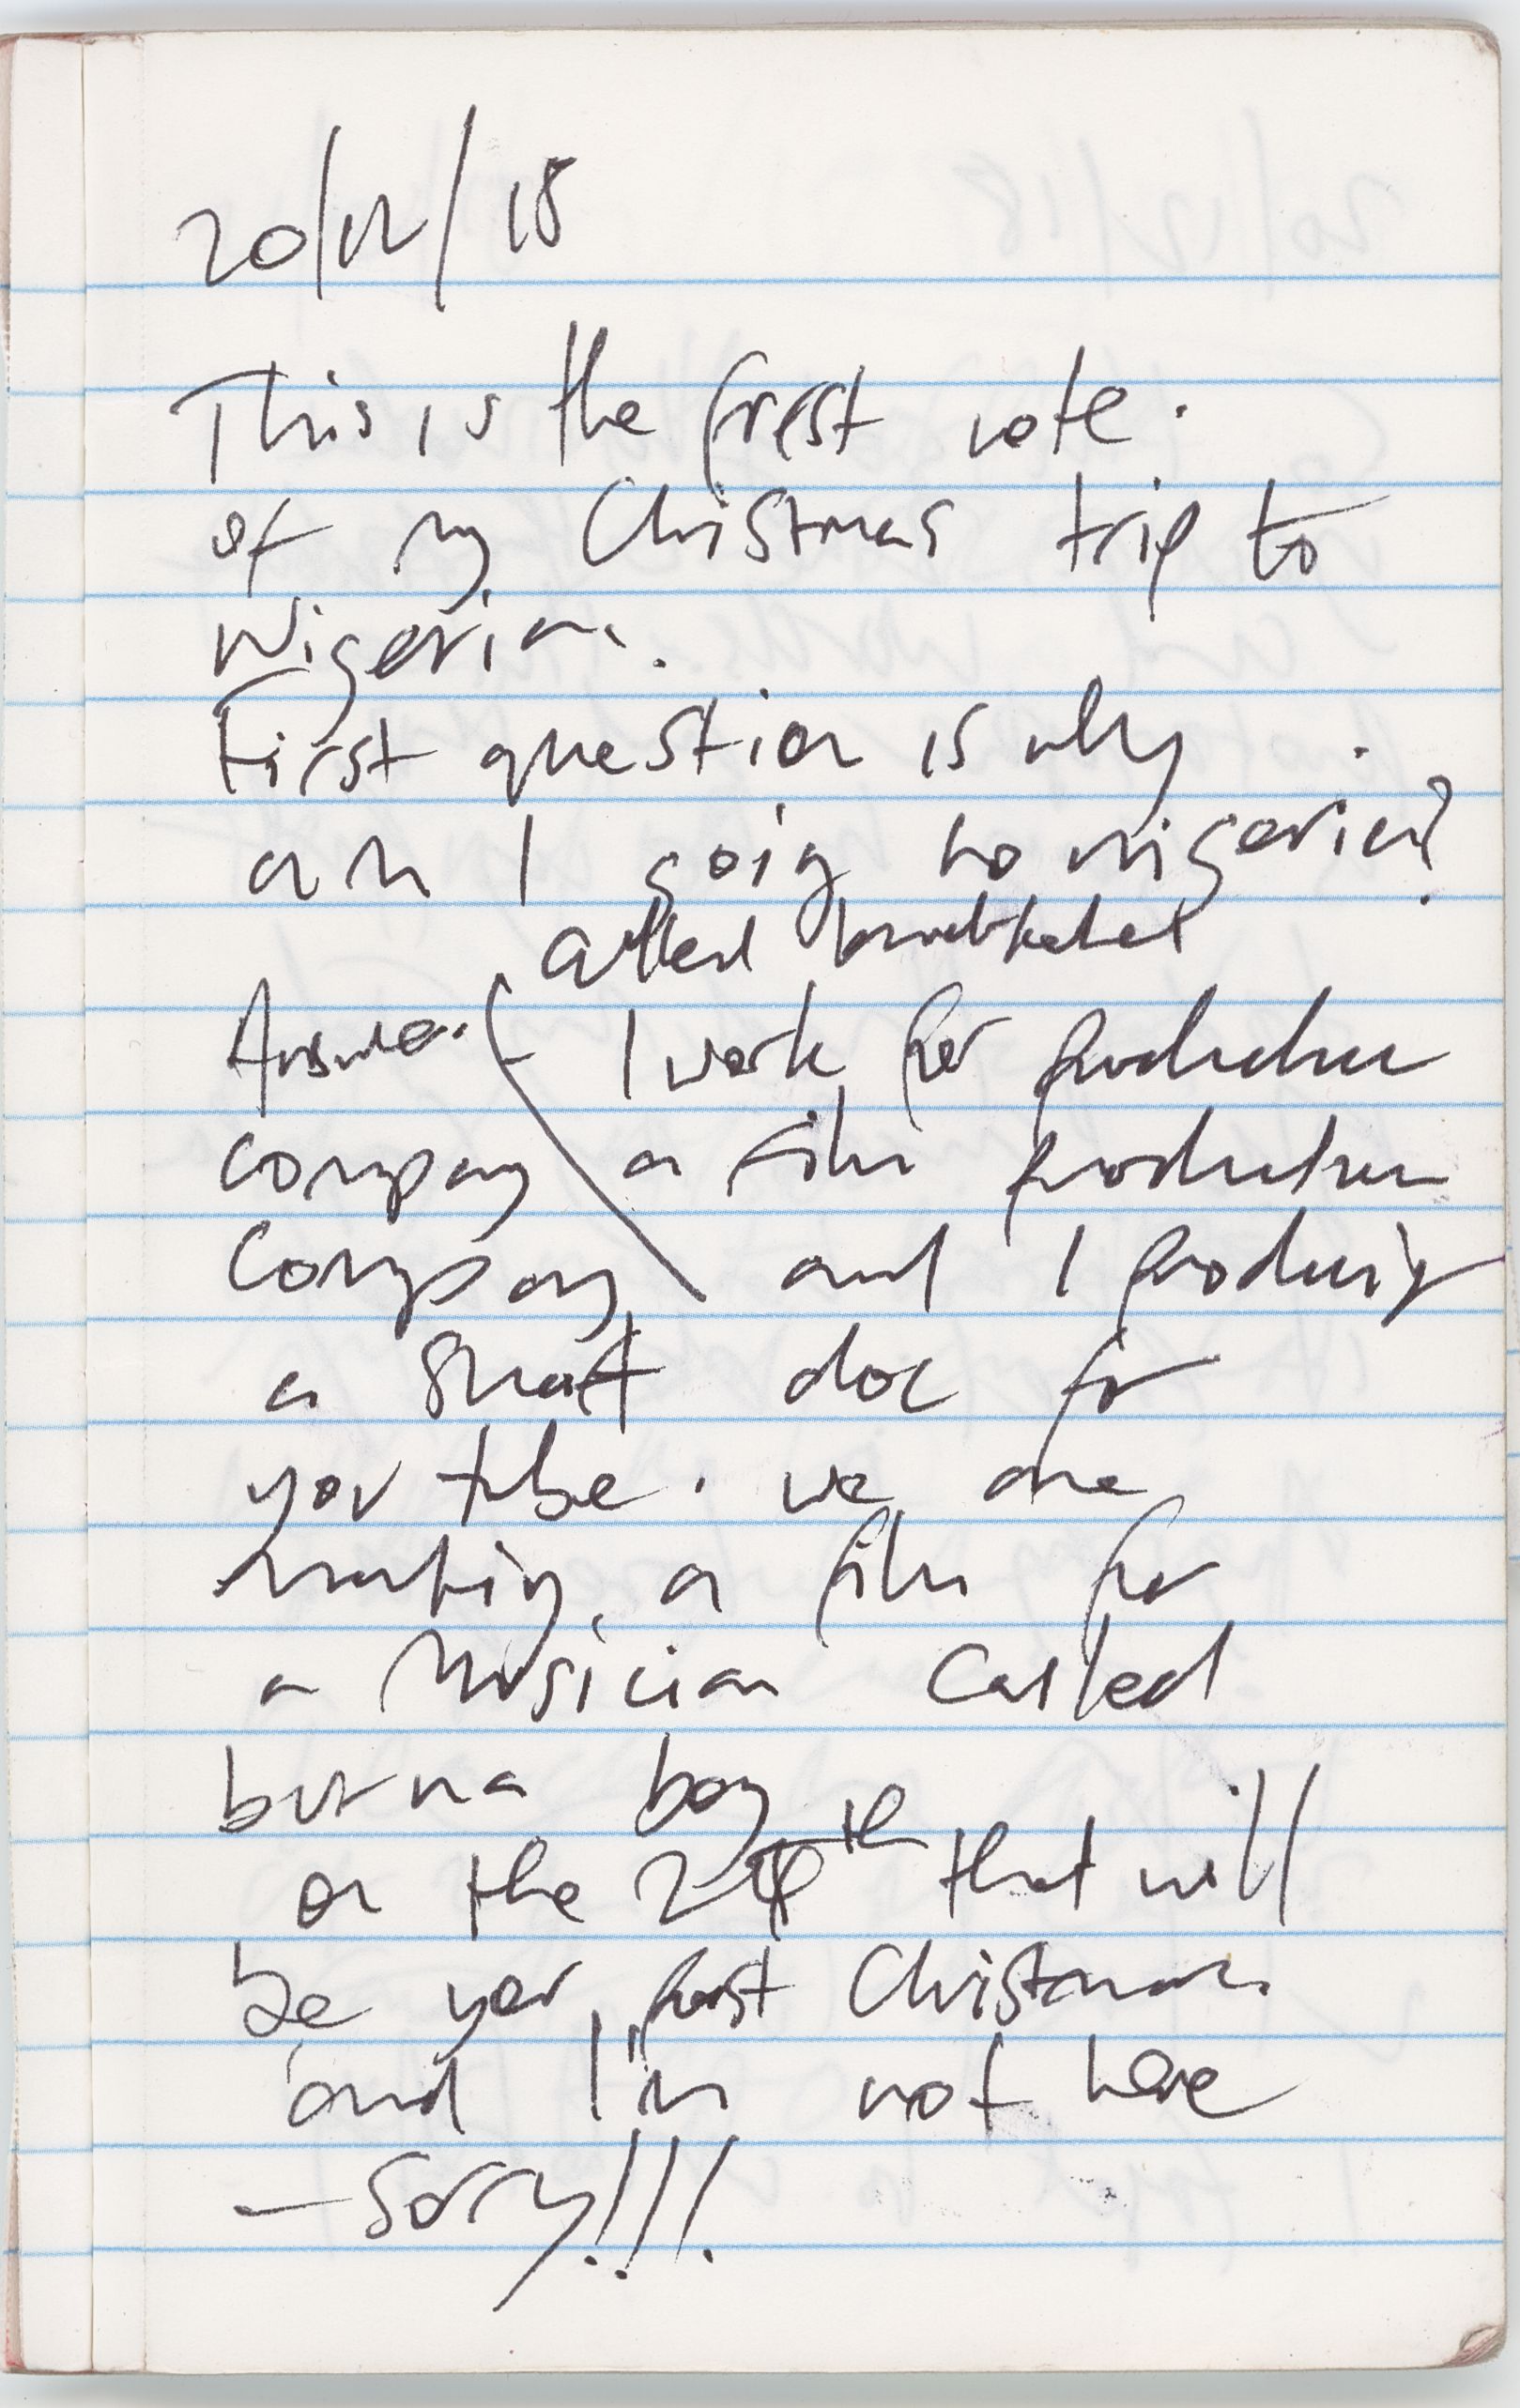 20/12/18
This is the first note.
of my Christmas trip to
Nigeria.
First question is why
am I going to nigeria?
called
Answer - I work for production
company a film production
Company and I producing
a short doc for
you tube. we are
making a film for
a Musician called
burna boy
on the 24th that will
be your first Christmas
and I'm not here
- Sorry!!!